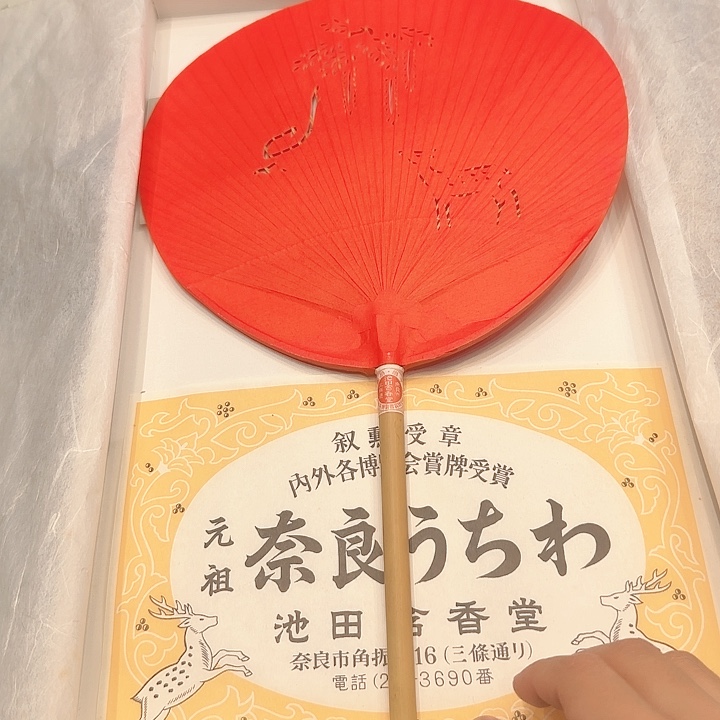 叙勲受章
内外各博会賞牌受賞
元祖
奈良うちわ
池田含香堂
奈良市角振16(三條通り)
電話(2-3690番